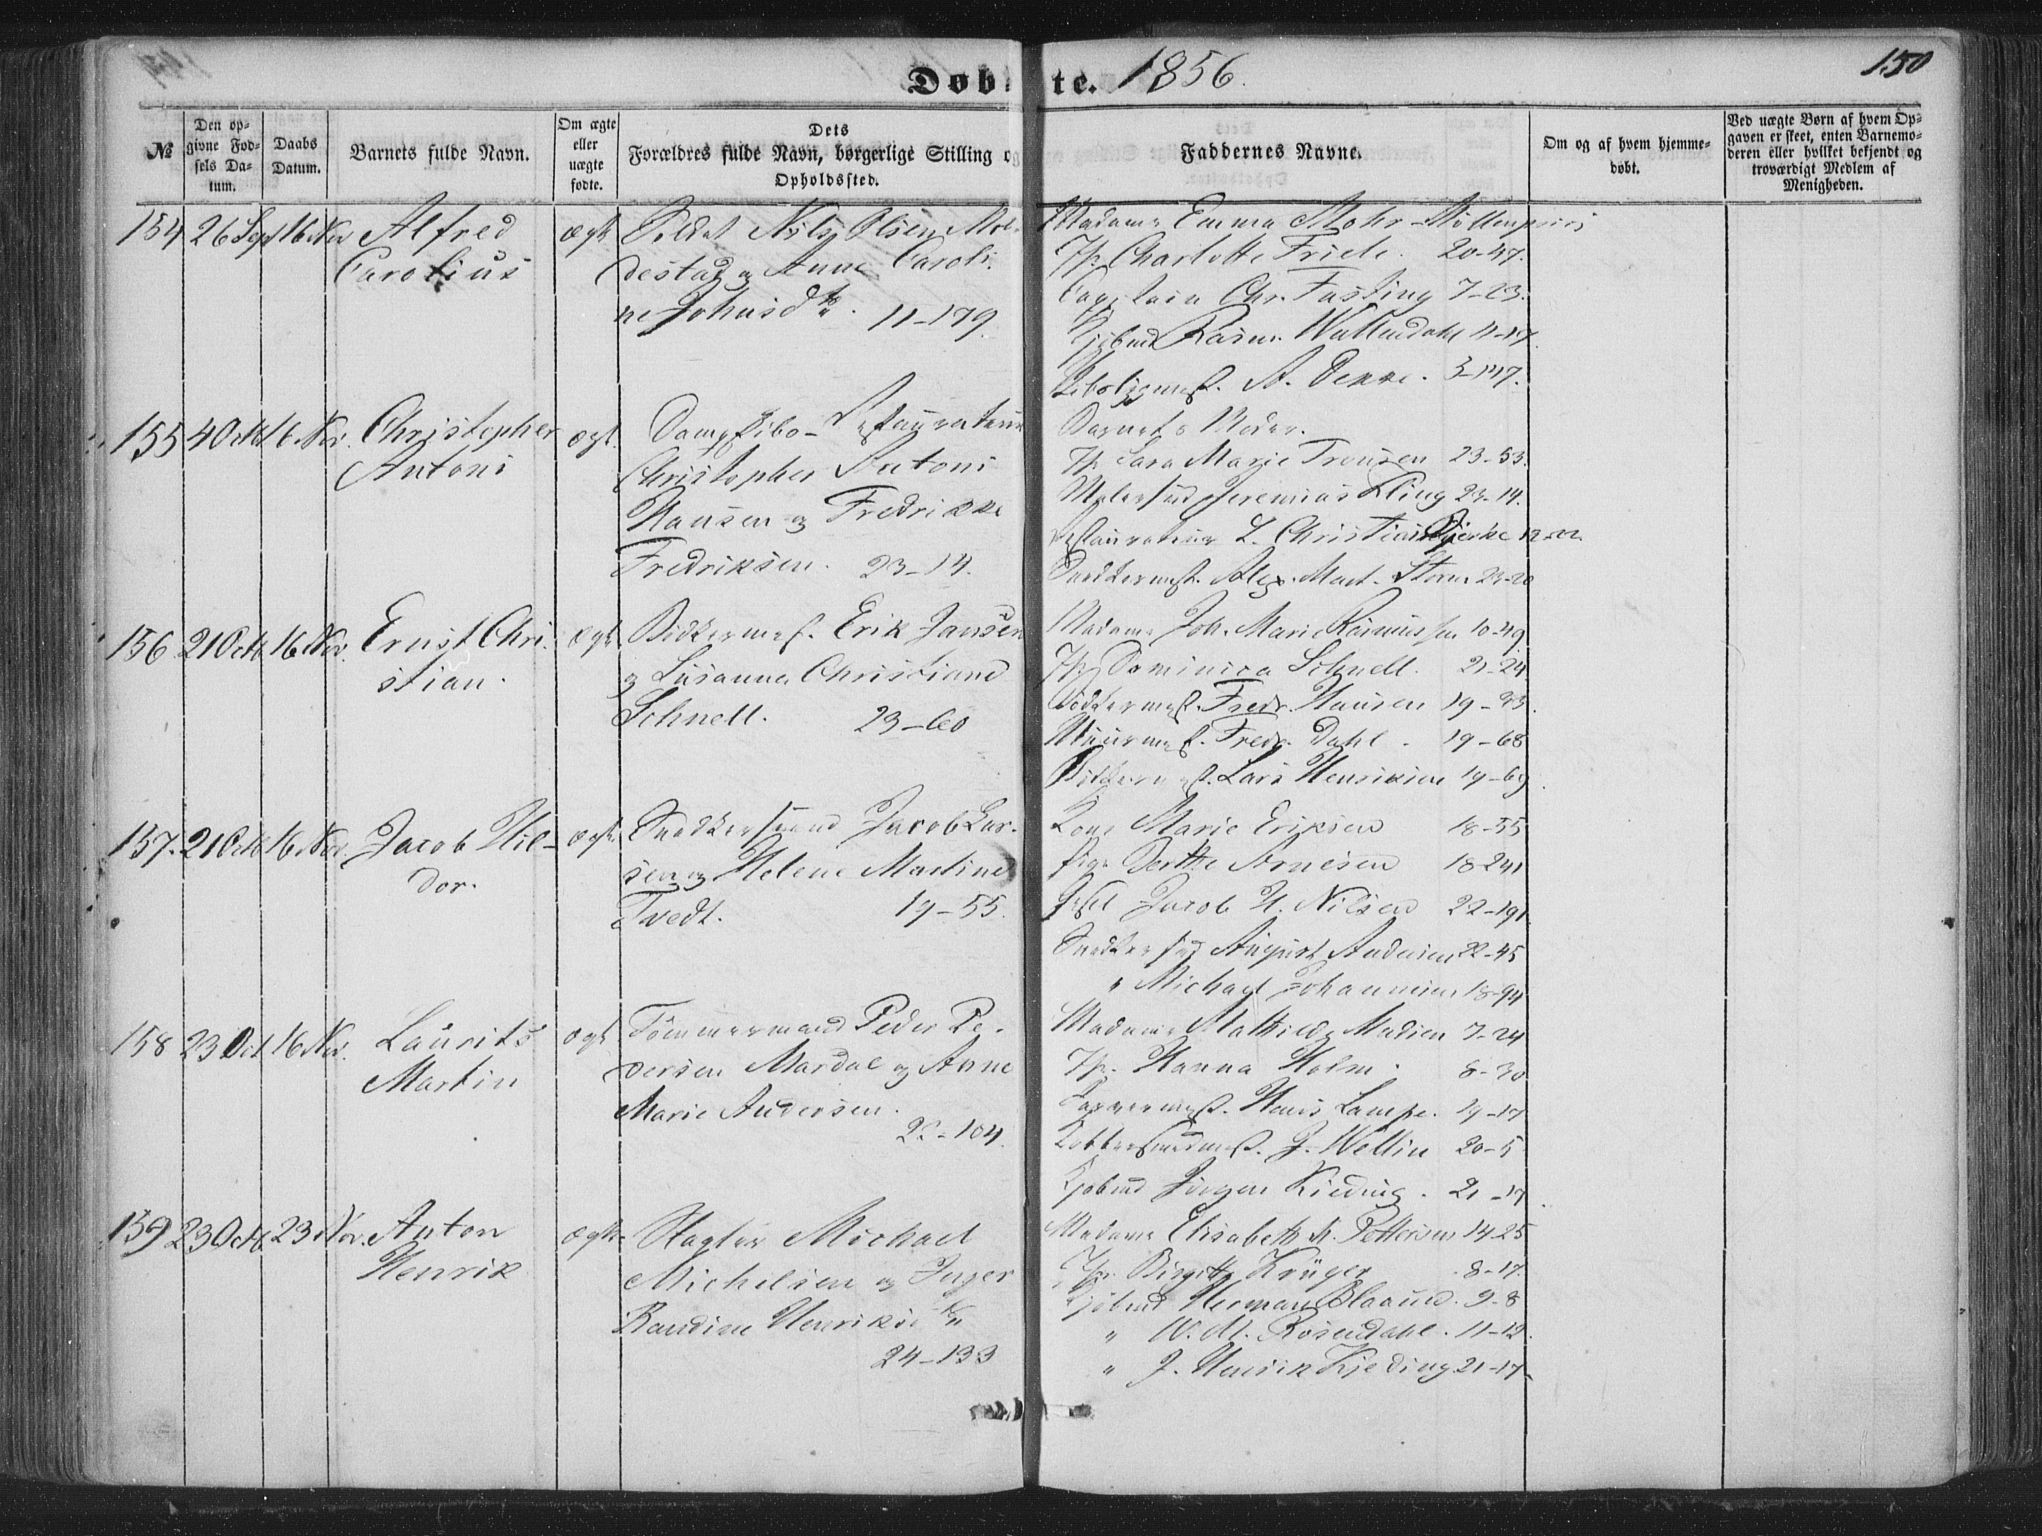 Døbte. 1856.
150
№
Den opgivne Fødsels Datum.
Daabs Datum.
Barnets fulde Navn.
Om ægte eller uægte fødte.
Dets Forældres fulde Navn, borgerlige Stilling og Opholdssted.
Faddernes Navne.
Om og af hvem hjemmedøbt.
Ved uægte Børn af hvem Opgaven er skeet, enten Barnemoderen eller hvilket bekjendt og troværdigt Medlem af Menigheden.
154 26 Sept 16 Nov Alfred
Carolius
ægte
Soldat Nils Olsen Mol-
destad og Anne Caroli-
ne Johnsdtr. 11-179
Madame Emma Mohr - Møllenpriis
Jfr. Charlotte Friele. 20-47.
Capitain Chr. Fasting 7-23.
Kjøbmd Rasm. Wallendahl 11-17.
A. Dekke. 3-147.
155 4 Oct 16 Nov. Christopher
Antoni
ægt.
Dampskibs-Restaurateur
Christopher Antoni
Hansen og Fredrikke
Fredriksen. 23-14.
Barnets Moder.
Jfr Sara Marie Tronsen 23-53.
Malersvd Jeremias Kling 23-14.
Restaurateur L. Christian Bjerke 12-22.
Snedkermest. Alex. Mart. Storm 23-20
156 21 Oct 16 Nov. Ernst Chri-
stian.
ægte
Bødkermest. Erik Jansen
og Susanna Christiane
Schnell. 23-60
Madame Joh. Marie Rasmussen 10-49
Jfr Dominica Schnell. 21-24
Bødkermest. Fredr. Hansen 19-33.
Muurmest. Fredr. Dahl. 19-68
Bødkermest. Lars Henriksen 19-69
157. 21 Oct 16 Nov. Jacob Hil-
dor.
ægte
Snedkersvend Jacob Lar-
sen og Helene Martine
Tvedt. 19-55.
Kone Marie Eriksen 18-55
Pige Berthe Arnesen 18-241
Jacob H. Nilsen 22-191
Snedkersvd August Andersen 22-45
" Michael Johannesen 18-94
158 23 Oct 16 Nov. Laurits
Martin
ægte
Tømmermand Peder Pe-
dersen Mardal og Anne
Marie Andersen.
22-104.
Madame Mathilde Madsen 7-24
Jfr. Hanna Holm. 8-30
Garvermest. Hans Lampe. 19-17
Kobbersmedmest. J. Wellin 20-5
Kjøbmd Jørgen Kieding. 21-17
159 23 Oct. 23 Nov. Anton
Henrik
ægte
Slagter Michael
Michelsen og Inger
Randine Henriksdtr
24-133
Madame Elisabeth M. Pettersen 14-25
Jfr. Birgitte Krüger 8-17.
Kjøbmd Herman Blaauw. 9-8
" W. M. Rosendahl. 11-12.
" J. Henrik Kjeding 21-17-